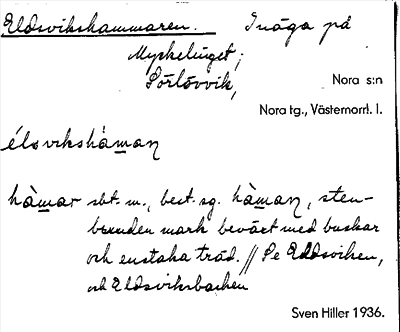 Eldsvikshammaren. Inäga på
Myckelänget;
Sörlövvik,
Nora s:n
Nora tg., Västernorrl. l.
élsvikshàman
hàmar sbt. m., best. sg. hàman, sten-
bunden mark beväxt med buskar
och enstaka träd. // Se Eldsviken,
och Eldsviksbacken
Sven Hiller 1936.